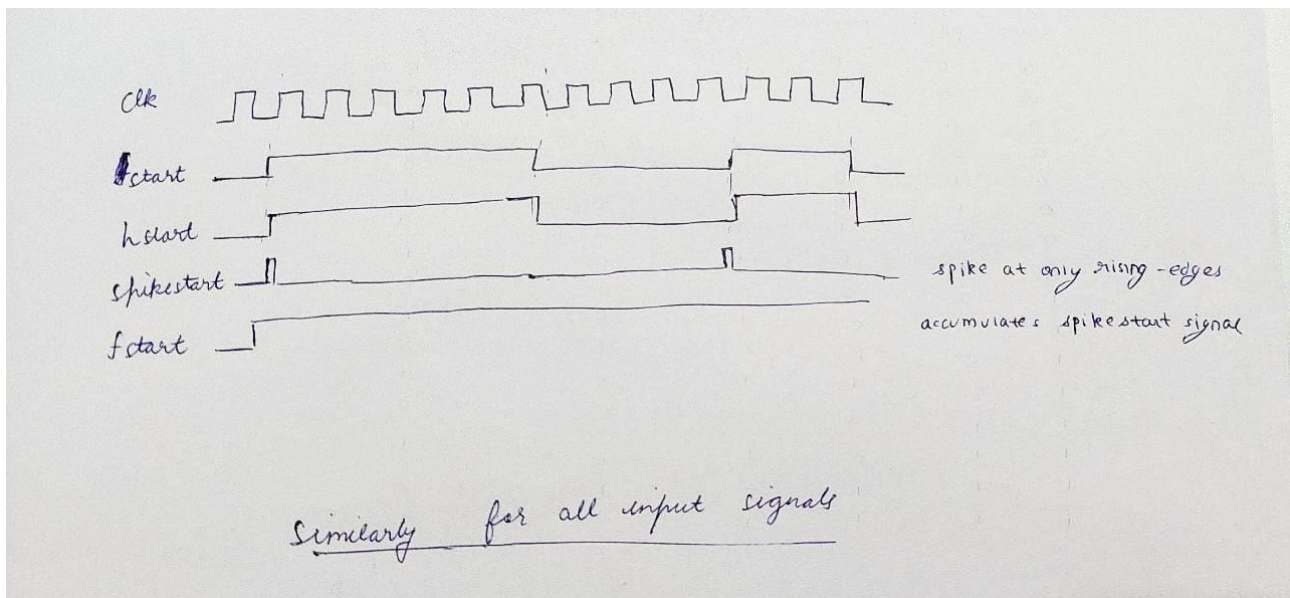 clk
start
hstart
spikestart
spike at only rising-edges
fstart
accumulates spikestart signal
Similarly for all input signals